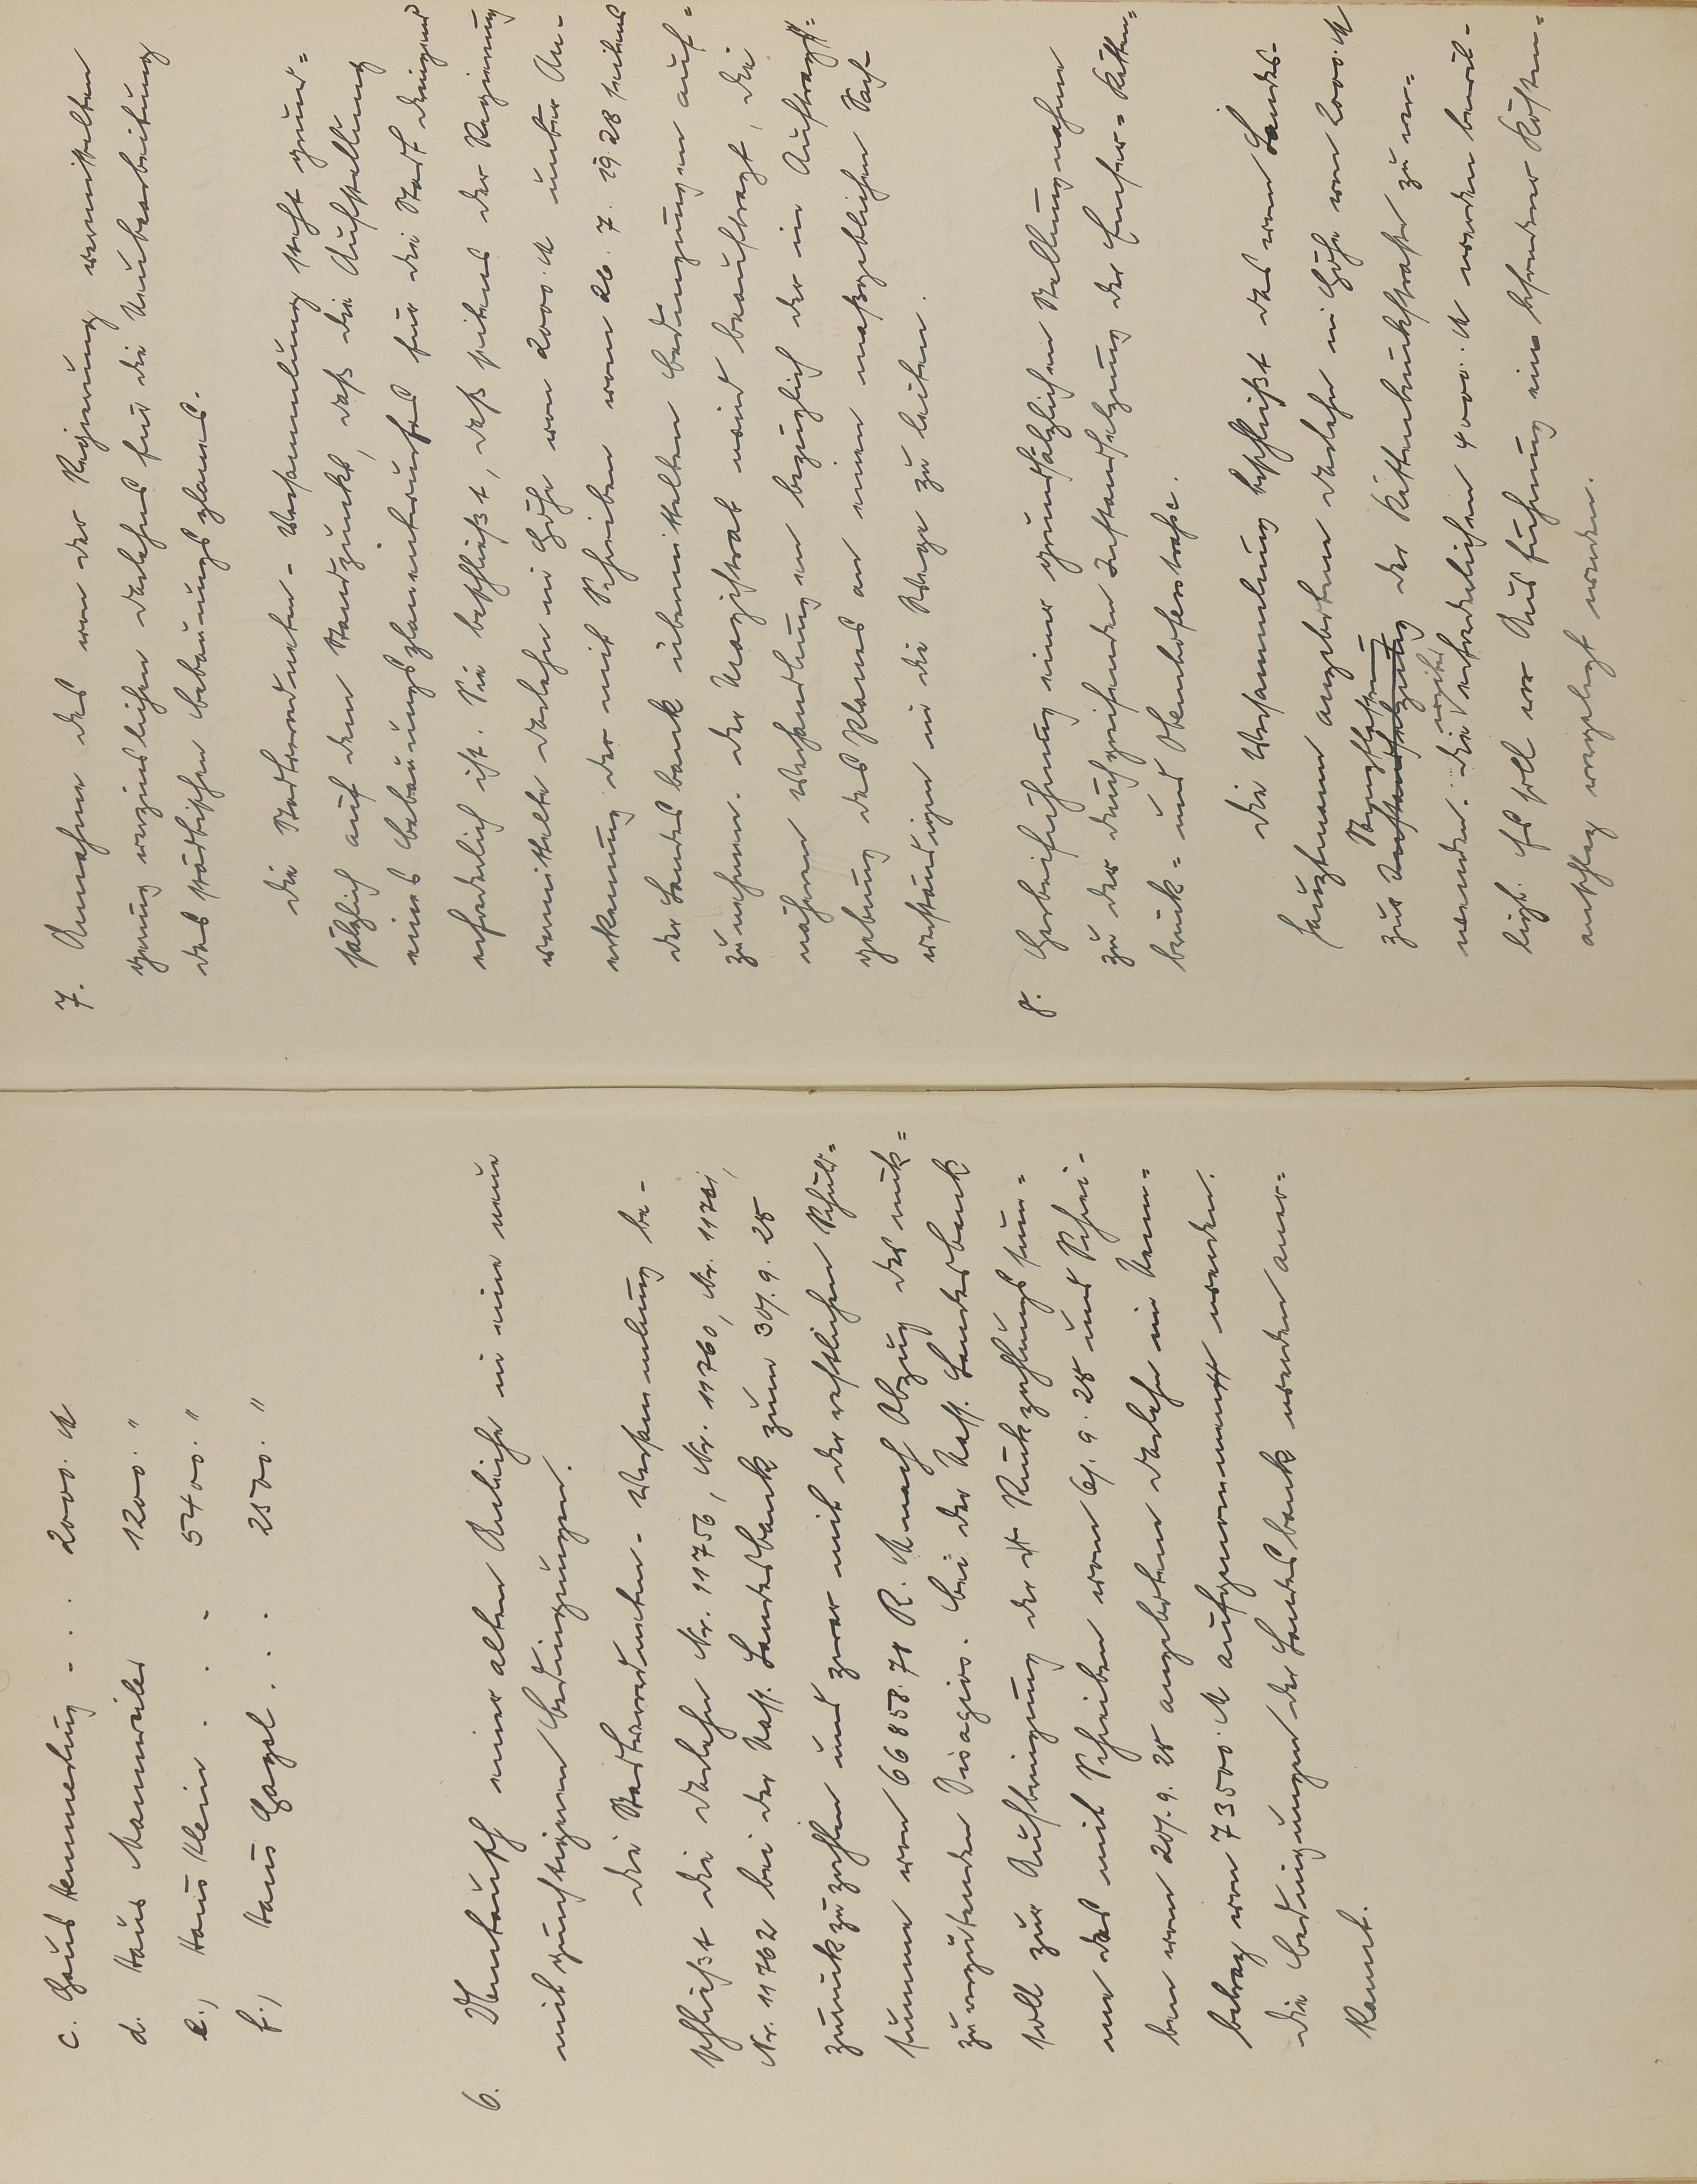 c. Haus Kennerdung - . . 2000. M
d. Haus Mannweiler 1200. "
e., Haus Klein . . - 5400. "
f., Haus Hazel . . . 2500. "
6. Umtausch einer alten Anleihe in eine neue
mit günstigeren Bedingungen.
Die Stadtverordneten-Versammlung be-
schließt die Darlehn Nr. 11756, Nr. 11760, Nr. 11761,
Nr. 11762 bei der Nass. Landesbank zum 30/9. 28
zurückzuzahlen und zwar mit der restlichen Schuld=
summe von 66858.71 R. M nach Abzug des rück=
zuvergütenden Disagios. Bei der Nass. Landesbank
soll zur Aufbringung der Rückzahlungssum=
me das mit Schreiben vom 6/. 9. 28 und Schrei-
ben vom 20/. 9. 28 angebotene Darlehn im Nenn=
betrag von 73500. M aufgenommen werden.
Die Bedingungen der Landesbank werden aner=
kannt.
7. Annahme des von der Regierung vermittelten
gering verzinslichen Darlehns für die Ausarbeitung
des städtischen Bebauungsplanes.
Die Stadtverordneten-Versammlung steht grund=
sätzlich auf dem Standpunkt, daß die Aufstellung
eines Bebauungsplanentwurfes für die Stadt dringend
erforderlich ist. Sie beschließt, daß seitens der Regierung
vermittelte Darlehn in Höhe von 2000. M unter An-
erkennung der mit Schreiben vom 26. 7. 1928 seitens
der Landesbank übermittelten Bedingungen auf=
zunehmen. Der Magistrat wird beauftragt, die
näheren Verhandlungen bezüglich der in Auftrag=
gebung des Planes an einen maßgeblichen Sach-
verständigen in die Wege zu leiten.
8. Herbeiführung einer grundsätzlichen Stellungnahme
zu der durchgreifenden Instandsetzung der Emser= Ketten=
brück= und Oberhofenstraße.
Die Versammlung beschließt das vom Landes-
hauptmann angebotene Darlehn in Höhe von 2000. M
zur Instandsetzung der Kettenbrückstraße zu ver=
wenden. Die weiter erforderlichen 4000. M werden bewil-
ligt. Es soll vor Ausführung ein besonderer Kosten=
anschlag vorgelegt werden.